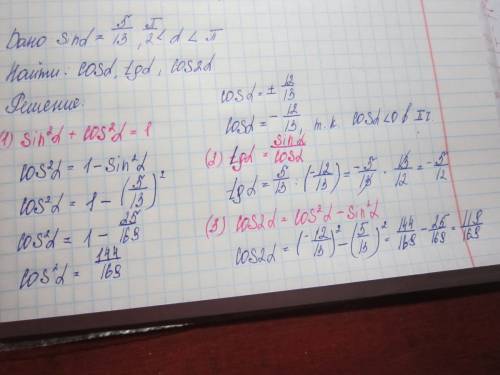 Дано sinα = 5/13, π/2 < α < π
Найти: cosα, tgα, cos2α
Решение.
(1) sin²α + cos²α = 1
cos²α = 1 - sin²α
cos²α = 1 - (5/13)²
cos²α = 1 - 25/169
cos²α = 144/169
cosα = ± 12/13
cosα = - 12/13 т.к. cosα<0 в II ч
(2) tgα = sinα/cosα
tgα = 5/13 : (-12/13) = -5/13 · 13/12 = -5/12
(3) cos2α = cos²α - sin²α
cos2α = (-12/13)² - (5/13)² = 144/169 - 25/169 = 119/169